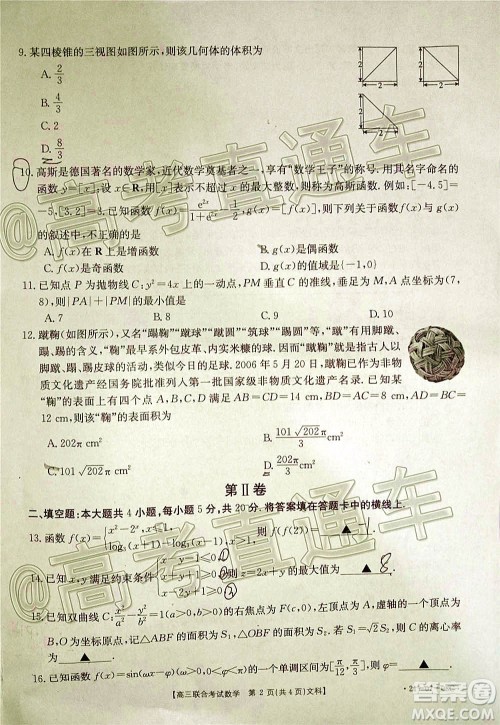 9. 某四棱锥的三视图如图所示,则该几何体的体积为
A. 2/3
B. 4/3
C. 2
D. 8/3
2
2
2
10. 高斯是德国著名的数学家,近代数学奠基者之一,享有“数学王子”的称号.用其名字命名的
函数y=[x],设x∈R,用[x]表示不超过x的最大整数,则称为高斯函数.例如:[-4.5]=
-5,[3.2]=3.已知函数f(x)=
,g(x)=[f(x)],则下列关于函数f(x)与g(x)
的叙述中正确的是
A. f(x)在R上是增函数
B. g(x)是偶函数
C. f(x)是奇函数
D. g(x)的值域是{-1,0}
11. 已知点P为抛物线C:y²=4x上的一动点,PM垂直C的准线,垂足为M,A点坐标为(7,
8),则|PA|+|PM|的最小值是
A. 7
B. 8
C. 9
D. 10
12. 蹴鞠(如图所示),又名“蹋鞠”“蹴球”“蹴圆”“筑球”“踢圆”等,“蹴”有用脚蹴、
蹋、踢的含义,“鞠”最早系外包皮革、内实米糠的球.因而“蹴鞠”就是指古人以
脚蹴、蹋、踢皮球的活动,类似今日的足球.2006年5月20日,蹴鞠已作为非
物质文化遗产经国务院批准列入第一批国家级非物质文化遗产名录.已知某
“鞠”的表面上有四个点A,B,C,D满足AB=CD=10 cm,BD=AC=8 cm,AD=BC=
12 cm,则该“鞠”的表面积为
A. 202π cm²
B. 101√202/3 π cm²
C. 101√202π cm²
D. 202π/3 cm²
第Ⅱ卷
二、填空题:本大题共4小题,每小题5分,共20分.将答案填在答题卡中的横线上.
13. 函数f(x)=
,则f(f(2))= ▲ .
14. 已知x,y满足约束条件
,则z=2x+y的最大值为 ▲ . 8
15. 已知双曲线C:x²/a²-y²/b²=1(a>0,b>0)的右焦点为F(c,0),右顶点为A,虚轴的一个顶点为
B,O为坐标原点,记△ABF的面积为S₁,△AOB的面积为S₂.若S₁=√2S₂,则双曲线C的离
心率为 ▲ .
16. 已知函数f(x)=sin(ωx-φ)(ω>0,0<φ<
)的一个单调区间为[π/12,π/3],则φ= ▲ .
【高三联合考试数学 第2页(共4页)文科】
@高考直通车
@高考直通车